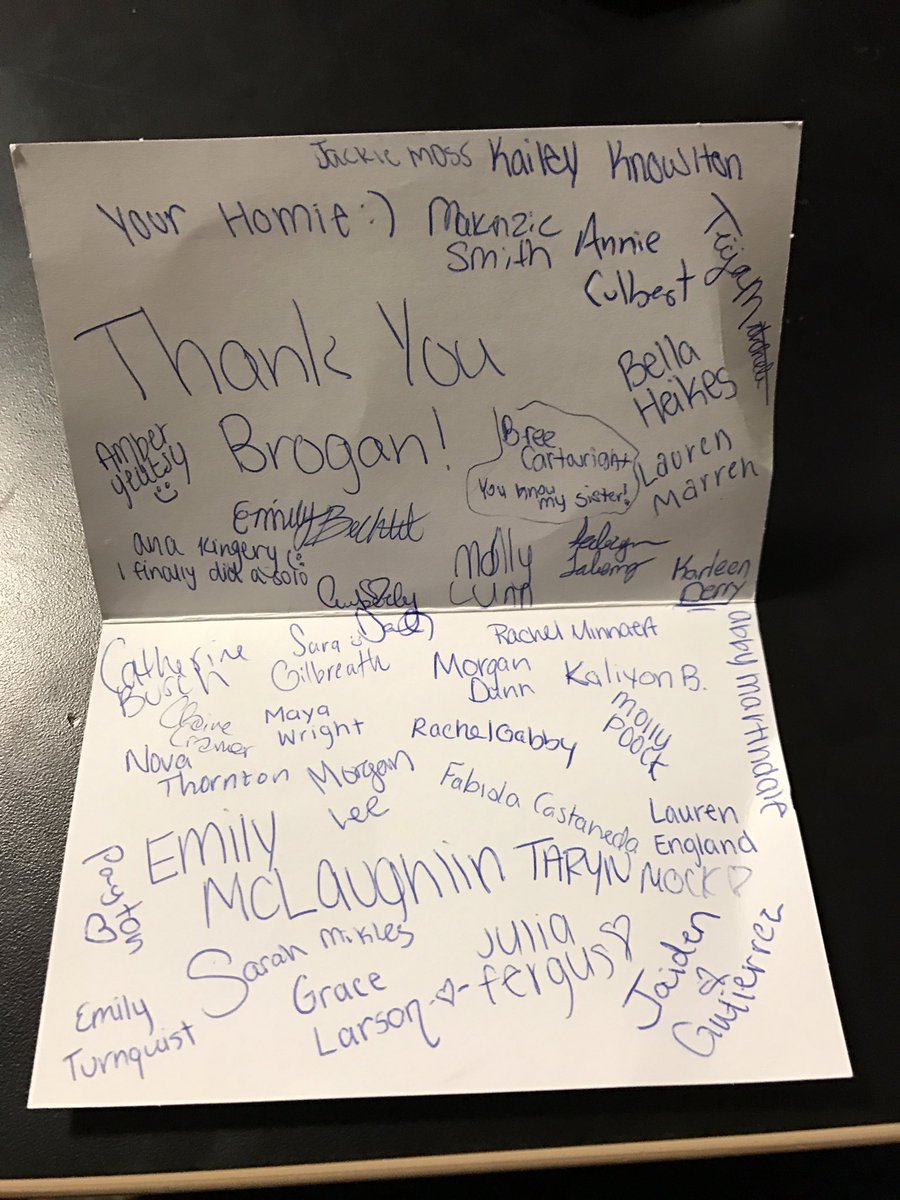 Jackie Moss Kailey Knowlton
Your Homie :) Maknzie
Smith
Annie
Culbert
Thank You
Brogan!
Bella
Heikes
Amber
Bree
Cartwright
You know
my sister!
Lauren
Marren
Emily
ana Kingery
I finally did a solo
Molly
Lunn
Karleen
Perry
abby martindale
Catherine
Busch
Sara
Gilbreath
Rachel Minnaert
Morgan
Dunn
Kaliyon B.
Claire
Cramer
Maya
Wright
Rachel Gabby
Molly
Poock
Nova
Thornton
Morgan
Lee
Fabiola Castaneda
Lauren
England
Emily
McLaughlin
TARYN MOCK ♡
Payton
B
Sarah Mikles
Julia
fergus ♡
Grace
Larson -♡-
Jaiden
♡
Gutierrez
Emily
Turnquist